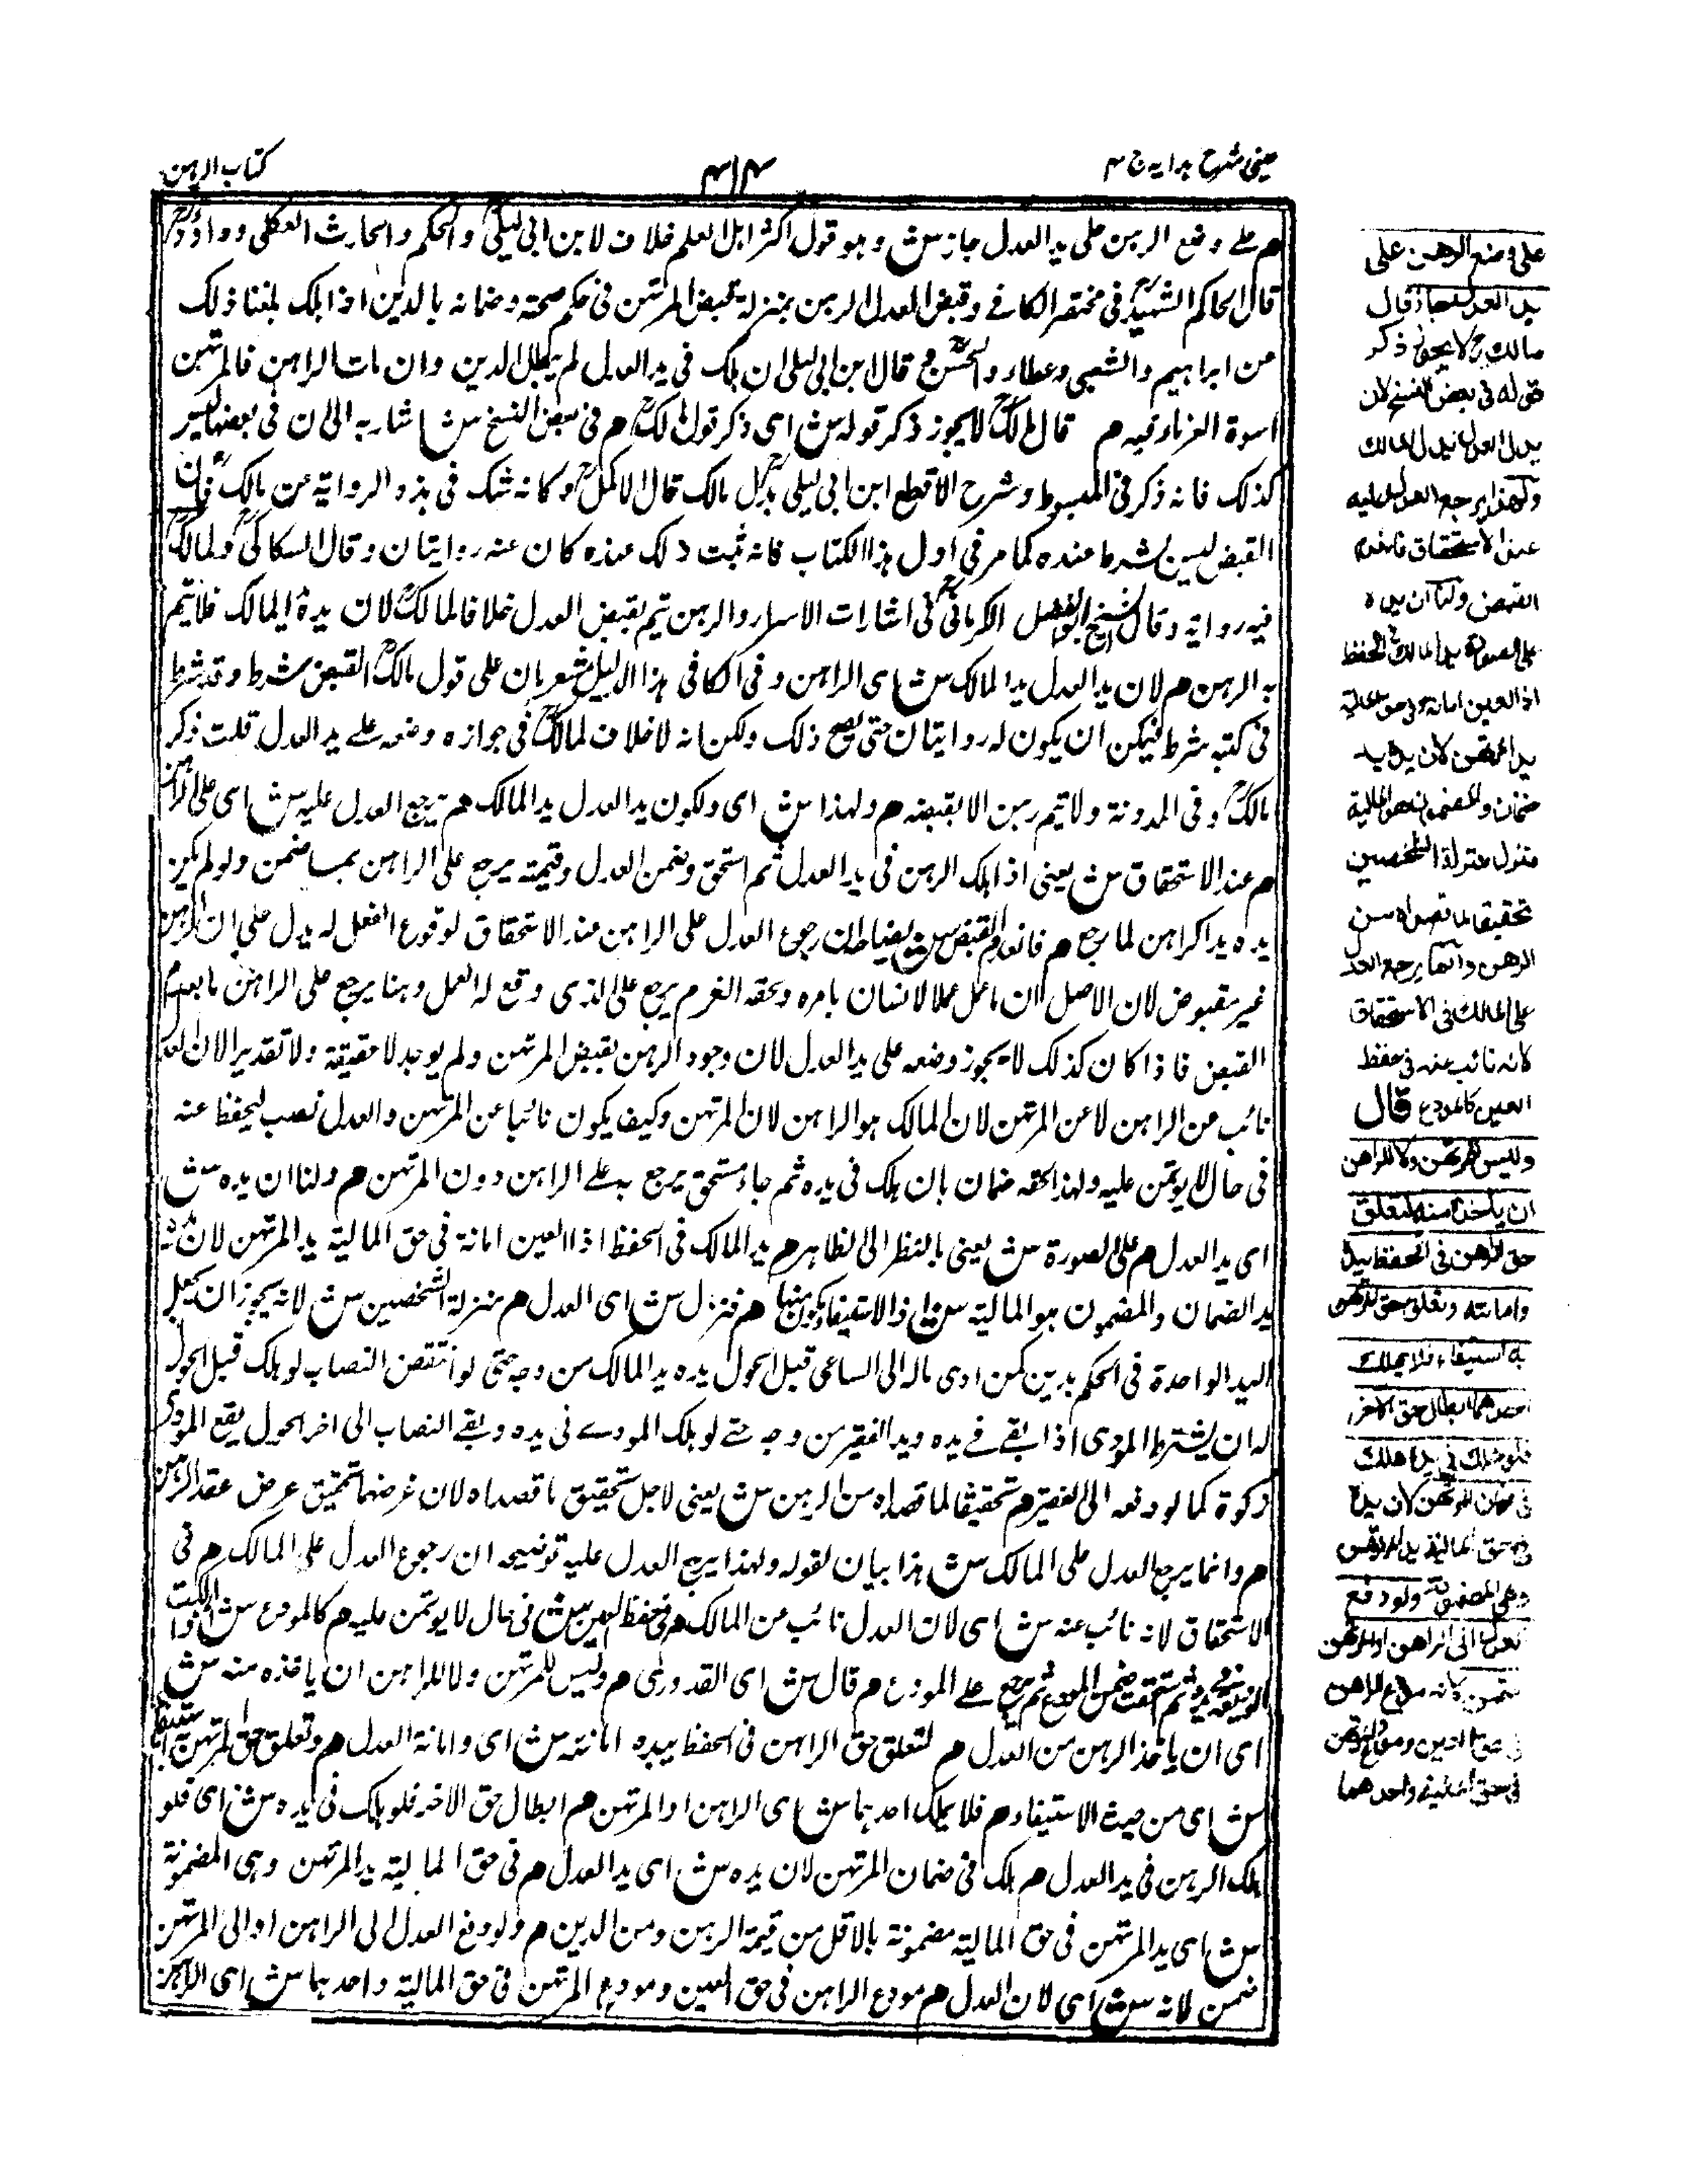 عینی شرح ہدایہ ج ۴
۴۱۴
کتاب الرہن
م علے وضع الرہن علی ید العدل جاز ش وہو قول اکثر اہل العلم خلاف لابن ابی لیلیؒ والحکم والحارث العکلی وداؤدؒ
قال الحاکم الشہیدؒ فی مختصر الکافے وقبض العدل الرہن بمنزلہ قبض المرتہن فی حکم صحتہ وضمانہ بالدین اذا ہلک بلغنا ذلک
من ابراہیم والشعبی وعطاء والحسنؒ وقال ابن ابی لیلی ان ہلک فی ید العدل لم یبطل الدین وان مات الراہن فالمرتہن
اسوۃ الغرماء فیہ م قال مالکؒ لایجوز ذکر قولہ ش ای ذکر قول مالکؒ م فی بعض النسخ ش اشار بہ الی ان فی بعضہا لیس
کذلک فانہ ذکر فی المبسوط وشرح الاقطع ابن ابی لیلی بدل مالک قال الاکملؒ وکانہ شک فی ہذہ الروایۃ عن مالکؒ فان
القبض لیس بشرط عندہ کما مر فی اول ہذا الکتاب فانہ ثبت ذلک عندہ کان عنہ روایتان وقال السکاکیؒ ولمالکؒ
فیہ روایۃ وقال الشیخ ابو الفضل الکرمانیؒ فی اشارات الاسرار والرہن یتم بقبض العدل خلافا لمالکؒ لان یدہ ید المالک فلا یتم
بہ الرہن م لان ید العدل ید المالک ش ای الراہن وفی الکافی ہذا الدلیل یشعر بان علی قول مالکؒ القبض شرط وقد شرط
فی کتبہ شرط فیکن ان یکون لہ روایتان حتی یصح ذلک ولکن انہ لاخلاف لمالکؒ فی جوازہ وضعہ علے ید العدل قلت ذکر
مالکؒ وفی المدونۃ ولا یتم رہن الا بقبضہ م ولہذا ش ای ولکون ید العدل ید المالک م یرجع العدل علیہ ش ای علی الراہن
م عند الاستحقاق ش یعنی اذا ہلک الرہن فی ید العدل ثم استحق وضمن العدل وقیمتہ یرجع علی الراہن بما ضمن ولو لم یکن
یدہ ید الراہن لما یرجع م فانعدم القبض ش ایضا لان رجوع العدل علی الراہن عند الاستحقاق لوقوع الفعل لہ یدل علی ان الرہن
غیر مقبوض لان الاصل ان ماعمل عملا لانسان بامرہ ولحقہ الغرم یرجع علی الذی وقع لہ العمل وہنا یرجع علی الراہن مابعدم
القبض فاذا کان کذلک لایجوز وضعہ علی ید العدل لان وجود الرہن بقبض المرتہن ولم یوجد لاحقیقۃ ولا تقدیرا لان العدل
نائب عن الراہن لا عن المرتہن لان المالک ہو الراہن لان المرتہن وکیف یکون نائبا عن المرتہن والعدل نصب لیحفظ عنہ
فی حال لایوتمن علیہ ولہذا لحقہ ضمان بان ہلک فی یدہ ثم جاء مستحق یرجع بہ علے الراہن دون المرتہن م ولنا ان یدہ ش
ای ید العدل م علی الصورۃ ش یعنی بالنظر الی الظاہر م ید المالک فی الحفظ اذا العین امانۃ فی حق المالیۃ ید المرتہن لان یدہ
ید الضمان والمضمون ہو المالیۃ ش اذ الاستیفاء یکون منہا م فنزل ش ای العدل م منزلۃ الشخصین ش لانہ یجوز ان یجعل
الید الواحدۃ فی الحکم یدین کمن ادی مالہ الی الساعی قبل الحول یدہ ید المالک من وجہ حتی لو انتقص النصاب لو ہلک قبل الحول
لہ ان یشترط المؤدی اذا بقے فے یدہ وید الفقیر من وجہ حتے لو ہلک المودے فی یدہ وبقے النصاب الی اخر الحول یقع المودی
زکوۃ کما لو دفعہ الی الفقیر م تحقیقا لما قصداہ من الرہن ش یعنی لاجل تحقیق ما قصداہ لان غرضہما تحقیق عرض عقد الرہن
م وانما یرجع العدل علی المالک ش ہذا بیان لقولہ ولہذا یرجع العدل علیہ توضیحہ ان رجوع العدل علی المالک م فی
الاستحقاق لانہ نائب عنہ ش ای لان العدل نائب عن المالک م فی حفظ العین ش فی حال لایوتمن علیہ م کالمودع ش اذا ہلکت
الودیعۃ فی یدہ ثم استحقت ضمن المودع ثم یرجع علے المودع م قال ش ای القدوری م ولیس للمرتہن ولا للراہن ان یاخذہ منہ ش
ای ان یاخذ الرہن من العدل م لتعلق حق الراہن فی الحفظ بیدہ وامانتہ ش ای وامانۃ العدل م وتعلق حق المرتہن بہ استیفاء
ش ای من حیث الاستیفاء م فلا یملک احدہما ش ای الراہن او المرتہن م ابطال حق الاخر فلو ہلک فی یدہ ش ای فلو
ہلک الرہن فی ید العدل م ہلک فی ضمان المرتہن لان یدہ ش ای ید العدل م فی حق المالیۃ ید المرتہن وہی المضمونۃ
ش ای ید المرتہن فی حق المالیۃ مضمونۃ بالاقل من قیمۃ الرہن ومن الدین م ولو دفع العدل الی الراہن او الی المرتہن
ضمن لانہ ش ای لان العدل م مودع الراہن فی حق العین ومودع المرتہن فی حق المالیۃ واحدہما ش ای الراہن
علی وضع الرهن علی
ید العدل جاز قال
مالكؒ لا یجوز ذکر
قوله فی بعض النسخ لان
ید العدل ید المالك
ولهذا یرجع العدل علیه
عند الاستحقاق فانعدم
القبض ولنا ان یده
علی الصورة ید المالك فی الحفظ
اذ العین امانة وفی حق المالیة
ید المرتهن لان یده ید
ضمان والمضمون هو المالیة
فنزل منزلة الشخصین
تحقیقا لما قصداه من
الرهن وانما یرجع العدل
علی المالك فی الاستحقاق
لانه نائب عنه فی حفظ
العین کالمودع قال
ولیس للمرتهن ولا للراهن
ان یاخذه منه لتعلق
حق الراهن فی الحفظ بیده
وامانته وتعلق حق المرتهن
به استیفاء فلا یملك
احدهما ابطال حق الاخر
فلو هلك فی یده هلك
فی ضمان المرتهن لان یده
فی حق المالیة ید المرتهن
وهی المضمونة ولو دفع
العدل الی الراهن او المرتهن
ضمن لانه مودع الراهن
فی حق العین ومودع المرتهن
فی حق المالیة واحدهما